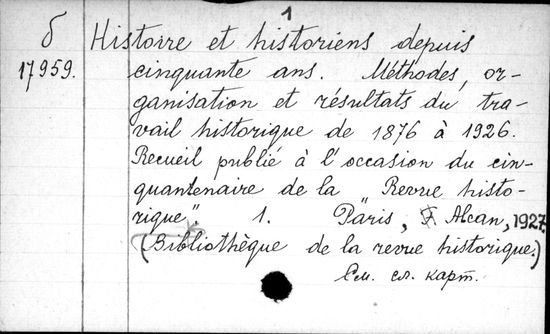 1
б Histoire et historiens depuis
17959. cinquante ans. Méthodes, or-
ganisation et résultats du tra-
vail historique de 1876 à 1926.
Recueil publié à l'occasion du cin-
quantenaire de la "Revue histo-
rique". 1. Paris, F. Alcan, 1927.
(Bibliothèque de la revue historique.)
См. сл. карт.